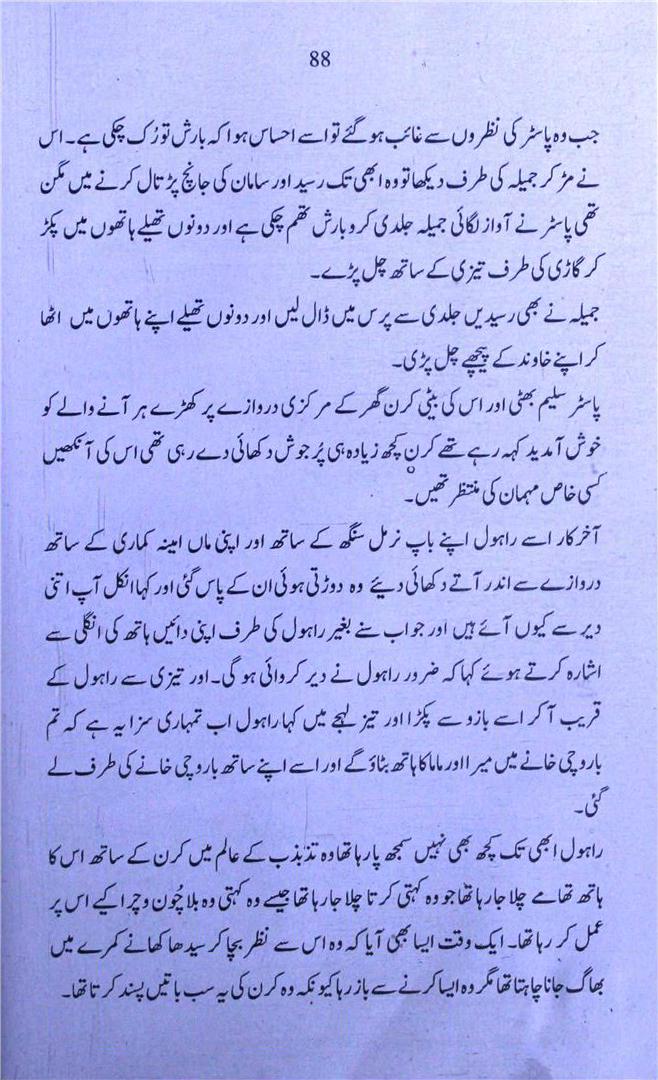 88
جب وہ پاسٹر کی نظروں سے غائب ہو گئے تو اسے احساس ہوا کہ بارش تو رُک چکی ہے۔ اس
نے مڑ کر جمیلہ کی طرف دیکھا تو وہ ابھی تک رسید اور سامان کی جانچ پڑتال کرنے میں مگن
تھی پاسٹر نے آواز لگائی جمیلہ جلدی کرو بارش تھم چکی ہے اور دونوں تھیلے ہاتھوں میں پکڑ
کر گاڑی کی طرف تیزی کے ساتھ چل پڑے۔
جمیلہ نے بھی رسیدیں جلدی سے پرس میں ڈال لیں اور دونوں تھیلے اپنے ہاتھوں میں اٹھا
کر اپنے خاوند کے پیچھے چل پڑی۔
پاسٹر سلیم بھٹی اور اس کی بیٹی کرن گھر کے مرکزی دروازے پر کھڑے ہر آنے والے کو
خوش آمدید کہہ رہے تھے کرن کچھ زیادہ ہی پُر جوش دکھائی دے رہی تھی اس کی آنکھیں
کسی خاص مہمان کی منتظر تھیں۔
آخر کار اسے راہول اپنے باپ نرمل سنگھ کے ساتھ اور اپنی ماں امینہ کماری کے ساتھ
دروازے سے اندر آتے دکھائی دیئے وہ دوڑتی ہوئی ان کے پاس گئی اور کہا انکل آپ اتنی
دیر سے کیوں آئے ہیں اور جواب سنے بغیر راہول کی طرف اپنی دائیں ہاتھ کی انگلی سے
اشارہ کرتے ہوئے کہا کہ ضرور راہول نے دیر کروائی ہو گی۔ اور تیزی سے راہول کے
قریب آ کر اسے بازو سے پکڑا اور تیز لہجے میں کہا راہول اب تمہاری سزا یہ ہے کہ تم
باروچی خانے میں میرا اور ماما کا ہاتھ بٹاؤ گے اور اسے اپنے ساتھ باروچی خانے کی طرف لے
گئی۔
راہول ابھی تک کچھ بھی نہیں سمجھ پا رہا تھا وہ تذبذب کے عالم میں کرن کے ساتھ اس کا
ہاتھ تھامے چلا جا رہا تھا جو وہ کہتی کرتا چلا جا رہا تھا جیسے وہ کہتی وہ بلا چُون و چرا کیے اس پر
عمل کر رہا تھا۔ ایک وقت ایسا بھی آیا کہ وہ اس سے نظر بچا کر سیدھا کھانے کمرے میں
بھاگ جانا چاہتا تھا مگر وہ ایسا کرنے سے باز رہا کیونکہ وہ کرن کی یہ سب باتیں پسند کرتا تھا۔